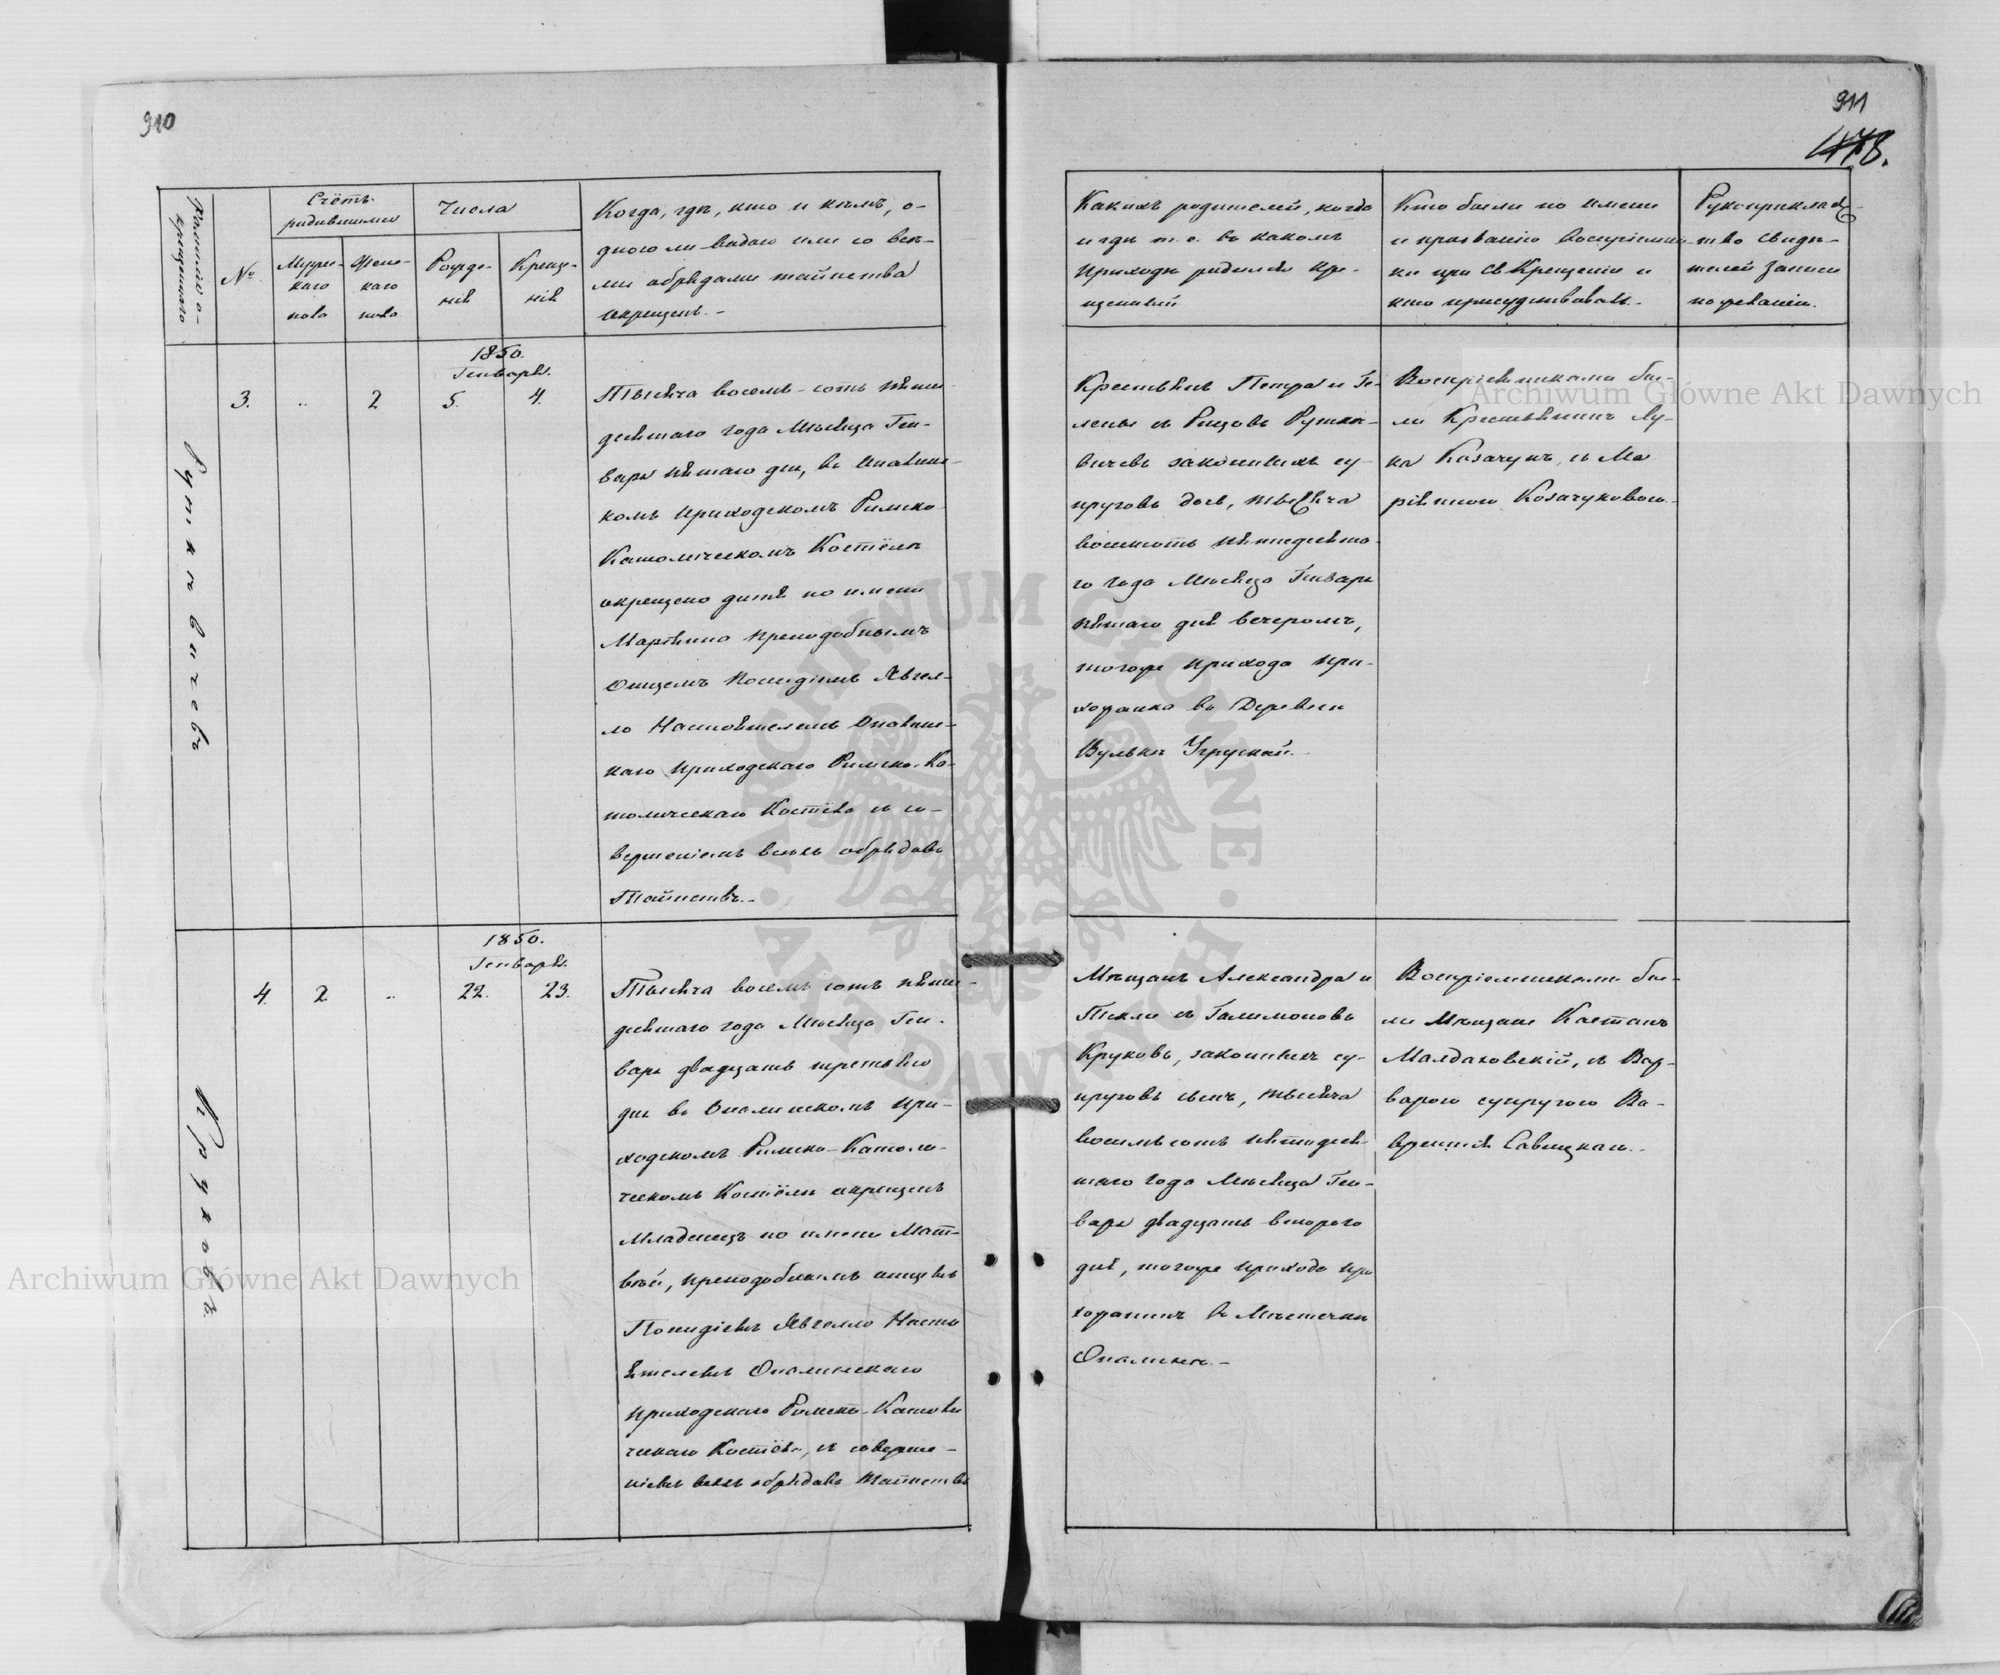 910
911
478.
Фамилія о-
крещеннаго
№
Счётъ
родившихся
Мужес-
каго
пола
Женс-
каго
пола
Числа
Рожде-
нія
Креще-
нія
Когда, гдѣ, кто и кѣмъ, о-
дною ли водою или со все-
ми обрядами таинства
окрещенъ.-
Руткевичевъ
3.
2
1850.
Генваря.
5.
4.
Тысяча восемь-сотъ пяти-
десятаго года Мѣсяца Ген-
варя пятаго дня, въ Опалинс-
комъ приходскомъ Римско
Католическомъ Костёлѣ
окрещено дитя по имени
Маріянна преподобнымъ
Отцемъ Ягел-
ло Настоятелемъ Опалинс-
каго приходскаго Римско-Ка-
толическаго Костёла съ со-
вершеніемъ всѣхъ обрядовъ
Таинствъ.-
Круковъ
4.
2
1850.
Генваря.
22.
23.
Тысяча восемь сотъ пяти-
десятаго года Мѣсяца Ген-
варя двадцать третьяго
дня въ Опалинскомъ при-
ходскомъ Римско-Католи-
ческомъ Костёлѣ окрещенъ
Младенецъ по имени Мат-
вѣй, преподобнымъ отцемъ
Ягелло Насто
ятелемъ Опалинскаго
приходскаго Римско-Католи
ческаго Костёла, съ соверше-
ніемъ всѣхъ обрядовъ Таинствъ
Какихъ родителей, когда
и гдѣ т. е. въ какомъ
приходѣ родился кре-
щенный
Кто были по имени
и прозванію Воспріемни-
ки при Св Крещеніи и
кто присудствовалъ.-
Рукоприклад-
тво свидѣ-
телей записи
Крестьянъ Петра и Ге-
лены съ Рутке-
вичевъ законныхъ су-
пруговъ дочь, тысяча
восемсотъ пятидесята-
го года Мѣсяца Генваря
пятаго дня вечеромъ,
тогоже прихода при-
хожанка въ Деревни
Вулькѣ Угруской.-
Воспріемниками бы-
ли Крестьянинъ Лу-
ка Казачукъ, съ Ма
ріянною Козачуковою.
Мѣщанъ Александра и
Теклы съ Галимоновъ
Круковъ, законныхъ су-
пруговъ сынъ, тысяча
восемь сотъ пятидеся-
таго года Мѣсяца Ген-
варя двадцать втораго
дня, тогоже прихода при
хожанинъ въ Мѣстечкѣ
Опалинѣ.-
Воспріемниками бы-
ли Мѣщане Каетанъ
Малдаховскій, съ Вар-
варою супругою Ла-
врентія Савицкаго.-
Archiwum Główne Akt Dawnych
Archiwum Główne Akt Dawnych
ARCHIWUM GŁÓWNE AKT DAWNYCH